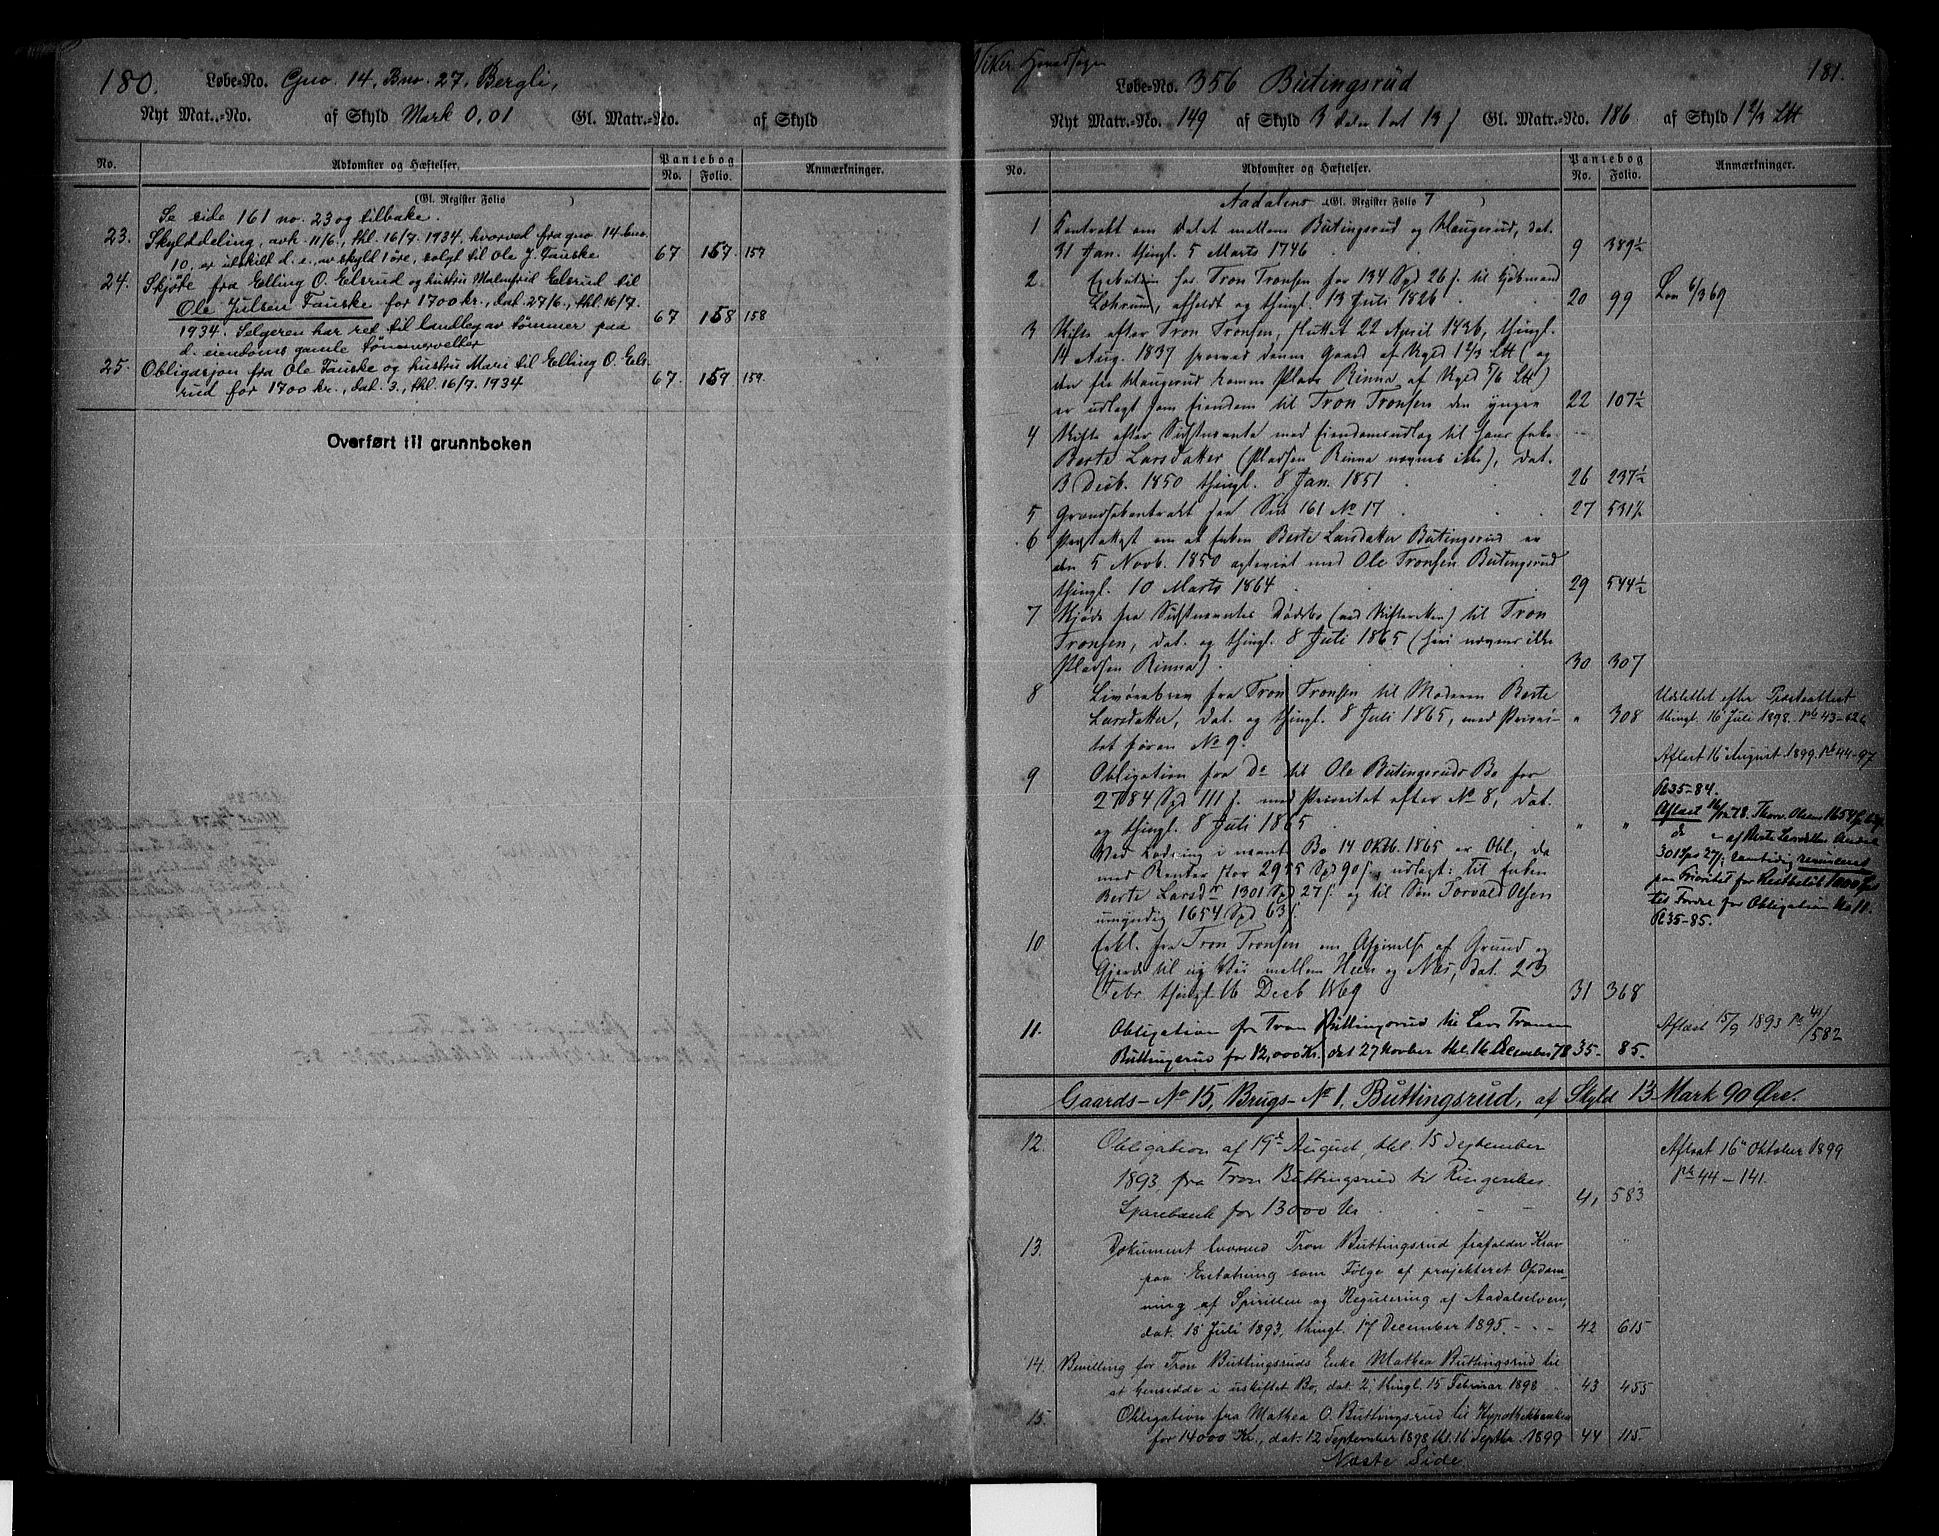 180. Løbe-No. Gno. 14. Bno. 27. Bergli,
Nyt Mat.-No. af Skyld Mark 0,01 Gl. Matr.-No. af Skyld
No. Adkomster og Hæftelser. Pantebog No. Folio. Anmærkninger.
(Gl. Register Folio )
Se side 161 no. 23 og tilbake.
23. Skylddeling, avh. 11/6., thl. 16/7. 1934, hvorved fra gno. 14 bno.
10, er utskilt d. e. av skyld 1 øre, solgt til Ole J. Fauske 67 157 157
24. Skjøte fra Elling O. Elsrud og hustru Malmfrid Elsrud til
Ole Julsen Fauske for 1700 kr., dat. 27/6., thl. 16/7.
1934. Selgeren har ret til landleg av tømmer paa 67 158 158
d. eiendoms gamle tømmervelter
25. Obligasjon fra Ole Fauske og hustru Mari til Elling O. Els-
rud for 1700 kr., dat. 3., thl. 16/7. 1934 67. 159 159.
Overført til grunnboken
Viker 181.
Løbe-No. 356 Butingsrud
Nyt Matr.-No. 149 af Skyld 3 Daler 1 ort 13 ſ Gl. Matr.-No. 186 af Skyld 1 2/3 Ltt
No. Adkomster og Hæftelser. Pantebog No. Folio. Anmærkninger.
Aadalens (Gl. Register Folio 7 )
1 Kontrakt om Delet mellem Butingsrud og Haugerud, dat.
31 Jan. thingl. 5 Marts 1746 9 389½
2. Exekution for Tron Tronsen for 134 Spd 26 ſ. til Kjøbmand
Lekrum, afholdt og thingl. 13 Juli 1826 20 99 6/3 69
3 Skifte efter Tron Tronsen, sluttet 22 April 1836, thingl.
14 Aug. 1837 hvorved denne Gaard af Skyld 1 2/3 Ltt (og
den fra Haugerud komne Plads Rinna af Skyld 5/6 Ltt)
er udlagt som Eiendom til Tron Tronsen den yngre 22 107½
4 Skifte efter Sidstnævnte med Eiendomsudlag til hans Enke
Berte Larsdatter (Pladsen Rinna nævnes ikke), dat.
3 Decb. 1850 thingl. 8 Jan. 1851 26 237½
5 Grændsekontrakt see Side 161 No 17 27 531½
6 Pagtakst om at Enken Berte Larsdatter Butingsrud er
den 5 Novb. 1850 egteviet med Ole Tronsen Butingsrud
thingl. 10 Marts 1864 29 544½
7 Skjøde fra Sidstnævntes Dødsbo (ved Skifteretten) til Tron
Tronsen, dat. og thingl. 8 Juli 1865 (heri nævnes ikke
Pladsen Rinna). 30 307
8 Livørebrev fra Tron Tronsen til Moderen Berte
Larsdatter, dat. og thingl. 8 Juli 1865, med Priori- " 308
tet foran No 9.
Udslettet efter Præsteattest
thingl. 16 Juli 1898. Pb 43-626
9 Obligation fra Do til Ole Butingsruds Bo for
2784 Spd 111 ſ. med Prioritet efter No 8, dat.
og thingl. 8 Juli 1865 " "
Ved Lodning i nævnt Bo 14 Oktb. 1865 er Obl., da
med Renter stor 2955 Spd 90 ſ, udlagt: til Enken
Berte Larsdr 1301 Spd 27 ſ. og til Søn Torvald Olsen
umyndig 1654 Spd 63 ſ.
Aflæst 16 August 1899. Pb 44-97
B35-84.
Aflæst 16/12 78. Thorv. Olsens 1654
do " af Berte Larsdtrs Andel
301 Sps 27 ſ, samtidig renunceret
paa Prioritet for Restbeløb 1000 Sp
til Fordel for Obligation No 11.
B35-85.
10 Erkl. fra Tron Tronsen om Afgivelse af Grund og
Gjerde til ny Vei mellem Heen og Næs, dat. 23
Febr. thingl. 16 Decb 1869 31 368
11. Obligation fra Tron Buttingsrud til Lars Tronsen
Buttingsrud for 12,000 Kr. dat 27 Novber thl. 16 December 78 35- 85.
Aflæst 15/9 1893 Pb 41/582
Gaards- No 15, Brugs- No 1, Buttingsrud, af Skyld 13 Mark 90 Øre.
12. Obligation af 19de August, thl. 15 September
1893, fra Tron Buttingsrud til Ringerikes
Sparebank for 13000 Kr 41 583
Aflæst 16 Oktober 1899
Pb 44-141.
13. Dokument hvorved Tron Buttingsrud frafalder Krav
paa Erstatning som Følge af projekteret Opdæm-
ning af Spirillen og Regulering af Aadalselven,
dat. 18 Juli 1893, thingl. 17 December 1895. 42 615
14. Bevilling for Tron Buttingsruds Enke Mathea Buttingsrud til
at hensidde i uskiftet Bo, dat. 2, thingl. 15 Februar 1898 43 455
15. Obligation fra Mathea O. Buttingsrud til Hypothekbanken
for 14000 Kr., dat. 12 September 1898 thl. 16 Septbr. 1899 44 115.
Næste Side